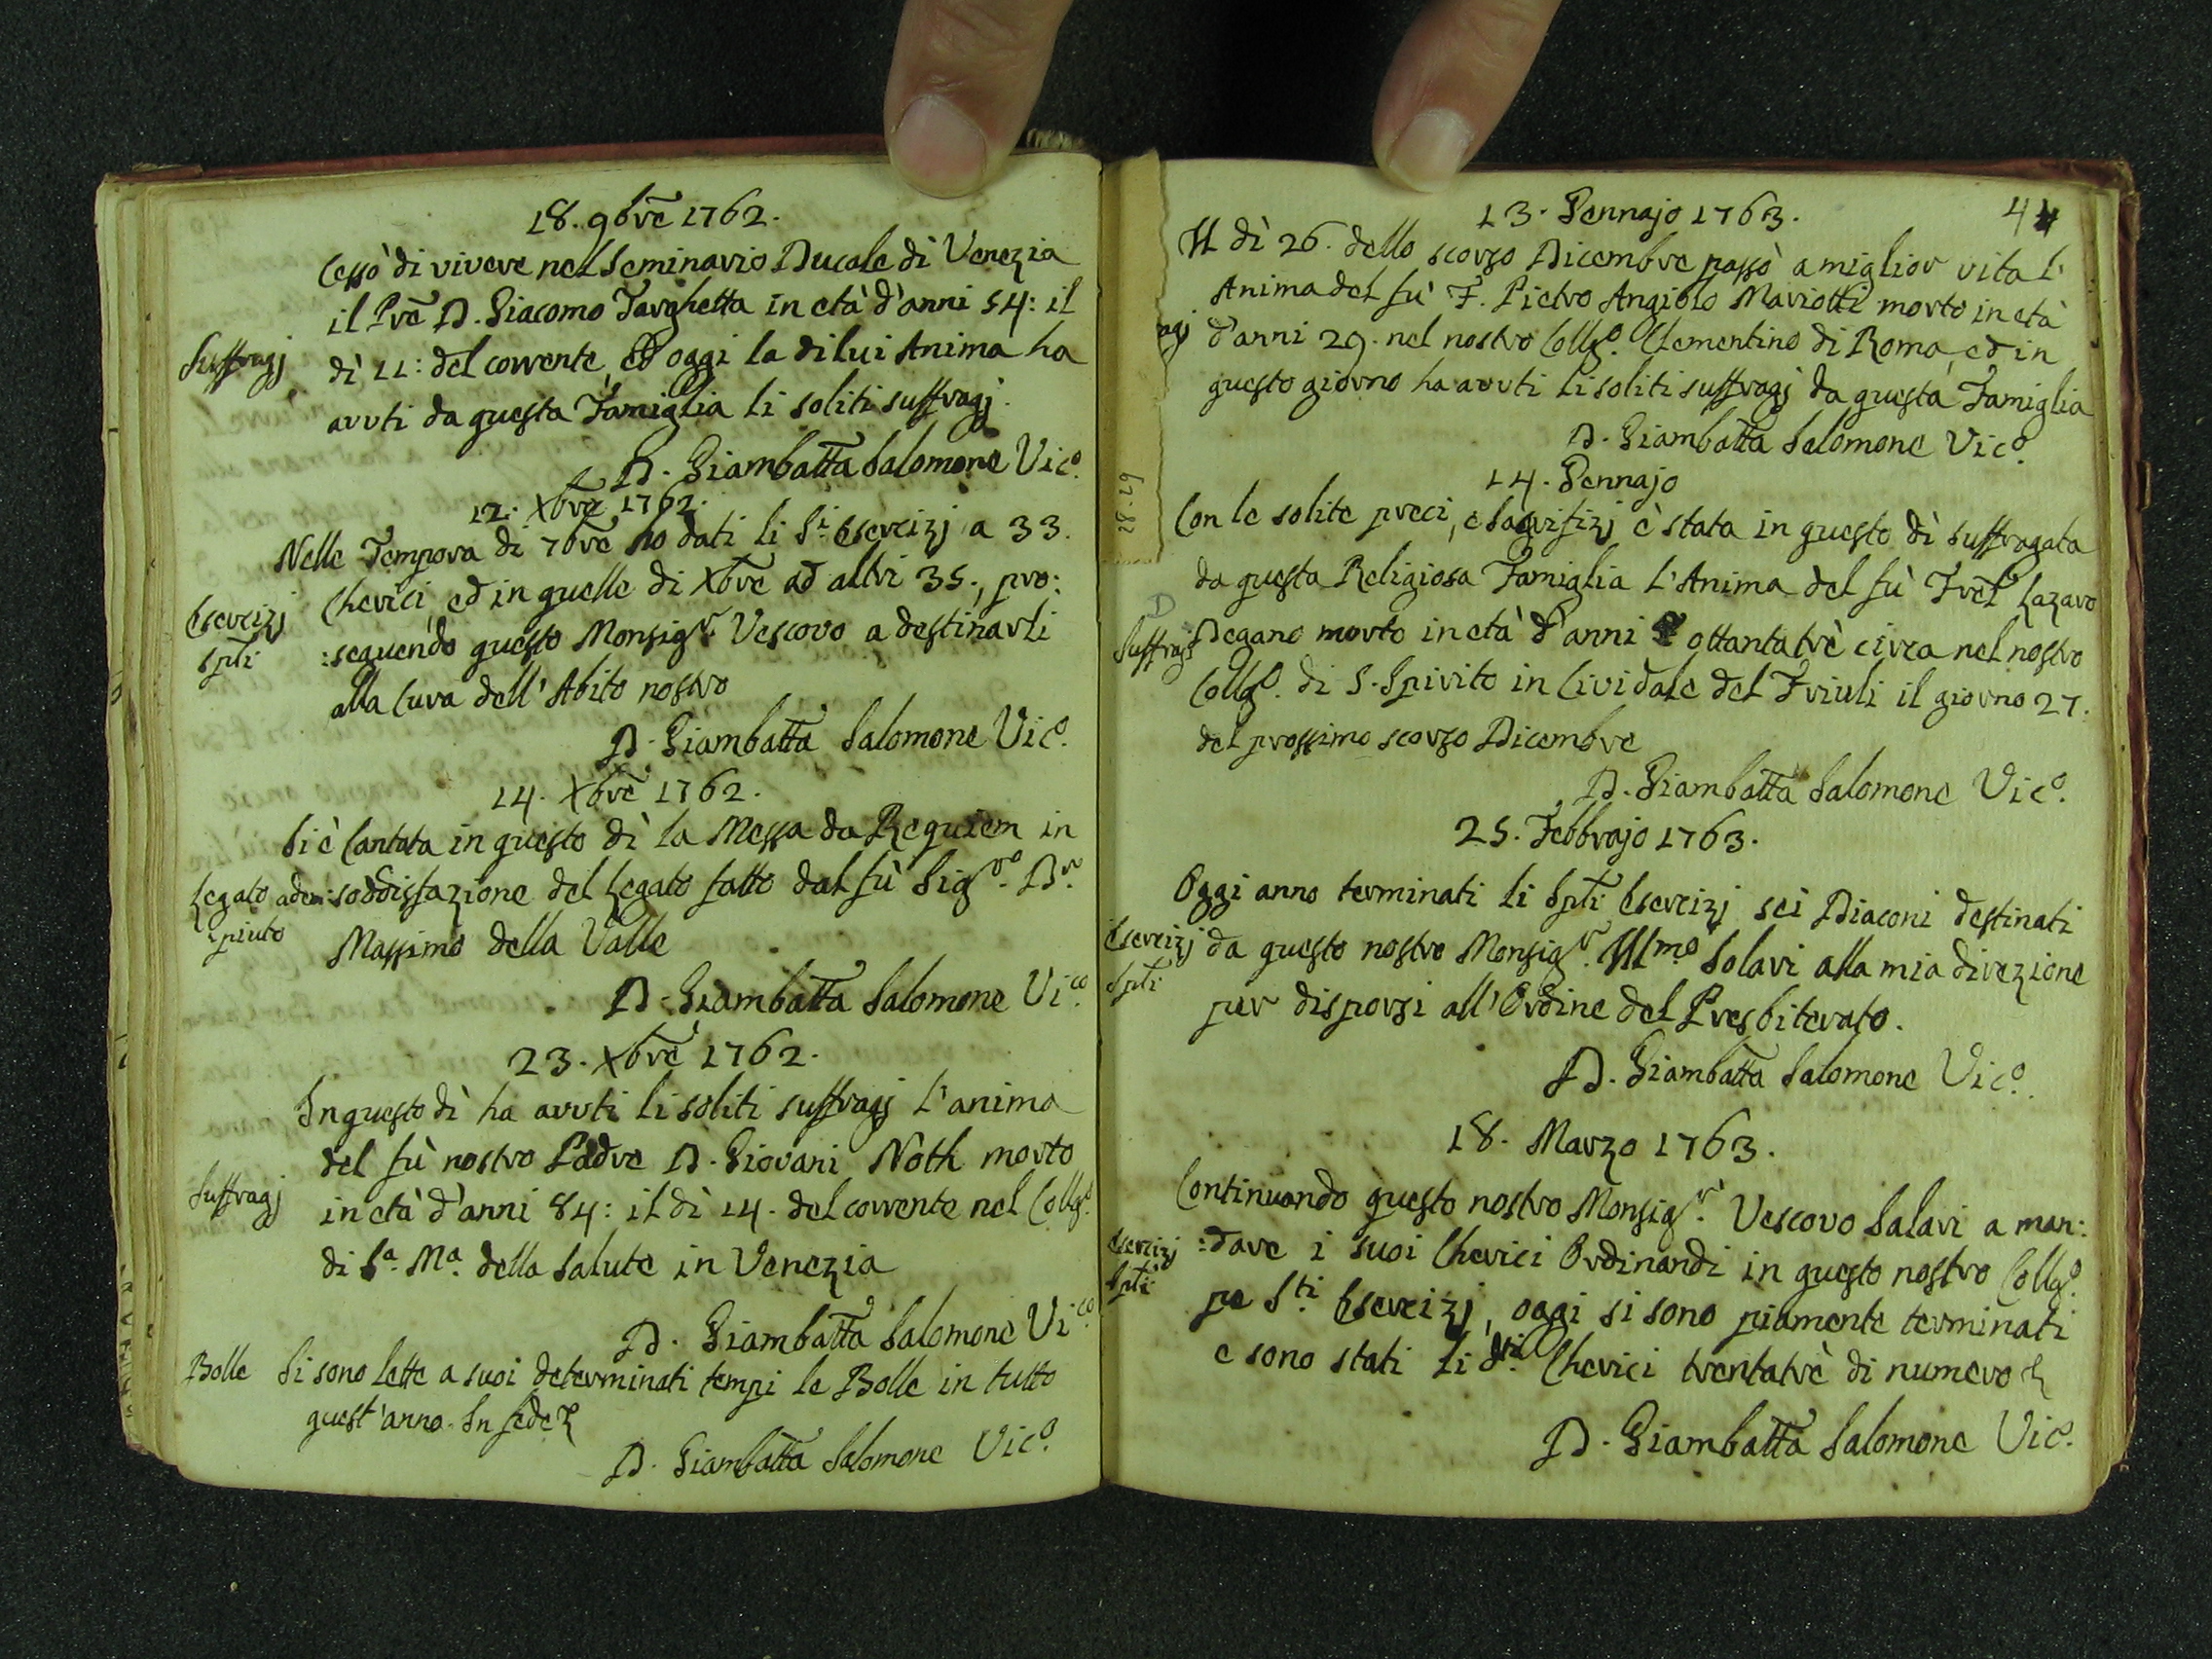 18. 9bre 1762.
Cessò di vivere nel Seminario Ducale di Venezia
il Pre D. Giacomo Targhetta in età d'anni 54: il
Suffragj
dì 11: del corrente, ed oggi la di lui Anima ha
avuti da questa Famiglia li soliti suffragj.
D. Giambatta Salomone Vico.
12. Xbre 1762.
Nelle Tempora di 7bre ho dati li Si Esercizj a 33.
Chierici, ed in quelle di Xbre ad altri 35., pro:
Esercizj
Spli
:seguendo questo Monsigr. Vescovo a destinarli
alla Cura dell'Abito nostro
D. Giambatta Salomone Vico.
14. Xbre 1762.
Si è Cantata in questo dì la Messa da Requiem in
Legato adem:
:piuto
soddisfazione del Legato fatto dal fù Sigro. Dr.
Massimo della Valle
D. Giambatta Salomone Vico.
23. Xbre 1762.
In questo dì ha avuti li soliti suffragj l'anima
del fù nostro Padre D. Giovani Noth morto
Suffragj
in età d'anni 84: il dì 14. del corrente nel Collgo.
di Sa. Ma. della Salute in Venezia
D. Giambatta Salomone Vico.
Bolle
Si sono lette a suoi determinati tempi le Bolle in tutto
quest'anno. In fede
D. Giambatta Salomone Vico.
44
13. Gennajo 1763.
Il dì 26. dello scorso Dicembre passò a miglior vita l'
Anima del fù F. Pietro Angiolo Mariotti morto in età
agj
d'anni 29. nel nostro Collgo. Clementino di Roma, ed in
questo giorno ha avuti li soliti suffragj da questa Famiglia
D. Giambatta Salomone Vico.
62-82
14. Gennajo
Con le solite preci, e Sagrifizj è stata in questo dì suffragata
da questa Religiosa Famiglia l'Anima del fù Frel Lazaro
Suffragj
Degano morto in età d'anni ottantatrè circa nel nostro
Collgo. di S. Spirito in Cividale del Friuli il giorno 27.
del prossimo scorso Dicembre
D. Giambatta Salomone Vico.
25. Febbrajo 1763.
Oggi anno terminati li Spli Esercizj sei Diaconi destinati
Esercizj
Spli
da questo nostro Monsigr. Illmo Solari alla mia direzione
per disporsi all'Ordine del Presbiterato.
D. Giambatta Salomone Vico.
18. Marzo 1763.
Continuando questo nostro Monsigr. Vescovo Salari a man:
Esercizj
Spli
:dare i suoi Cherici Ordinandi in questo nostro Collgo.
pe Sti Esercizj, oggi si sono piamente terminati
e sono stati li dti. Cherici trentatrè di numero
D. Giambatta Salomone Vico.